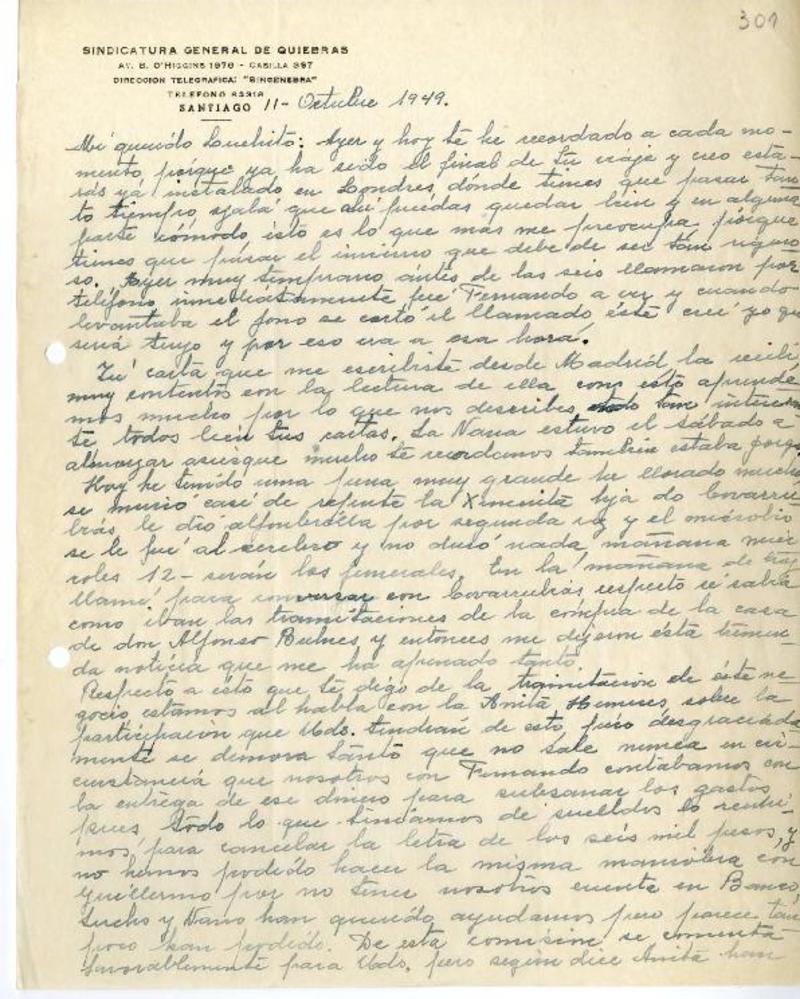 301
SINDICATURA GENERAL DE QUIEBRAS
AV. B. O'HIGGINS 1970 - CASILLA 397
DIRECCION TELEGRAFICA: "SINGENEBRA"
TELEFONO 83318
SANTIAGO 11- Octubre 1949.
Mi querido Luchito: Ayer y hoy te he recordado a cada mo-
mento, porque ya ha sido el final de tu viaje y creo esta-
rás ya instalado en Londres, dónde tienes que pasar tan
to tiempo, ojalá que ahí puedas quedar bien y en alguna
parte cómodo ésto es lo que más me preocupa, porque
tienes que pasar el invierno que debe de ser tan riguro
so. Ayer muy temprano ántes de las seis llamaron por
teléfono inmediatamente fué Fernando a ver y cuando
levantaba el fono se cortó el llamado éste creí yo que
sería tuyo y por eso era a esa hora.
Tu carta que me escribiste desde Madrid la recibí
muy contentos con la lectura de ella con esto aprende
mos mucho por lo que nos describes tan interesan
te todos leen tus cartas. La Nana estuvo el sábado a
almorzar asíesque mucho te recordamos también estaba
Hoy he tenido una pena muy grande he llorado mucho
se murió casi de repente la Ximenita hija de Covarru
bias le dió alfombrilla por segunda vez y el microbio
se le fué al cerebro y no duró nada, mañana miér
coles 12- serán los funerales. En la mañana de hoy
llamé para conversar con Covarrubias respecto se sabía
como iban las tramitaciones de la compra de la casa
de don Alfonso Bulnes y entonces me dijeron ésta tremen
da noticia que me ha apenado tanto.
Respecto a ésto que te digo de la tramitación de éste ne
gocio estamos al habla con la Anita sobre la
participación que Uds. tendrán de esto pero desgraciada
mente se demora tánto que no sale nunca en cir-
cunstancia que nosotros con Fernando contábamos con
la entrega de ese dinero para subsanar los gastos
pues todo lo que teníamos de sueldos lo reuni-
mos para cancelar la letra de los seis mil pesos, y
no hemos podido hacer la misma maniobra con
Guillermo por no tener nosotros cuenta en Banco,
Lucho y han querido ayudarnos pero parece tam
poco han podido. De esta comisión se comenta
favorablemente para Uds. pero según dice Anita han